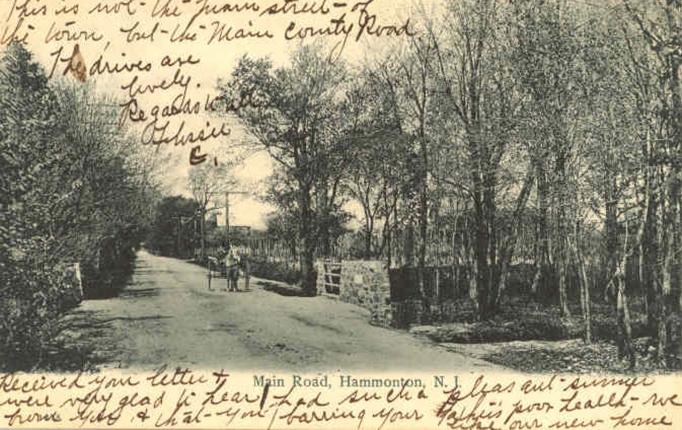 This is not the main street of
the town, but the Main County Road
The drives are
lovely.
Regards to all
E.
Main Road, Hammonton, N. J.
Received your letter &
were very glad to hear had such a pleasant summer
from you & that you (barring your poor health we
like our new home